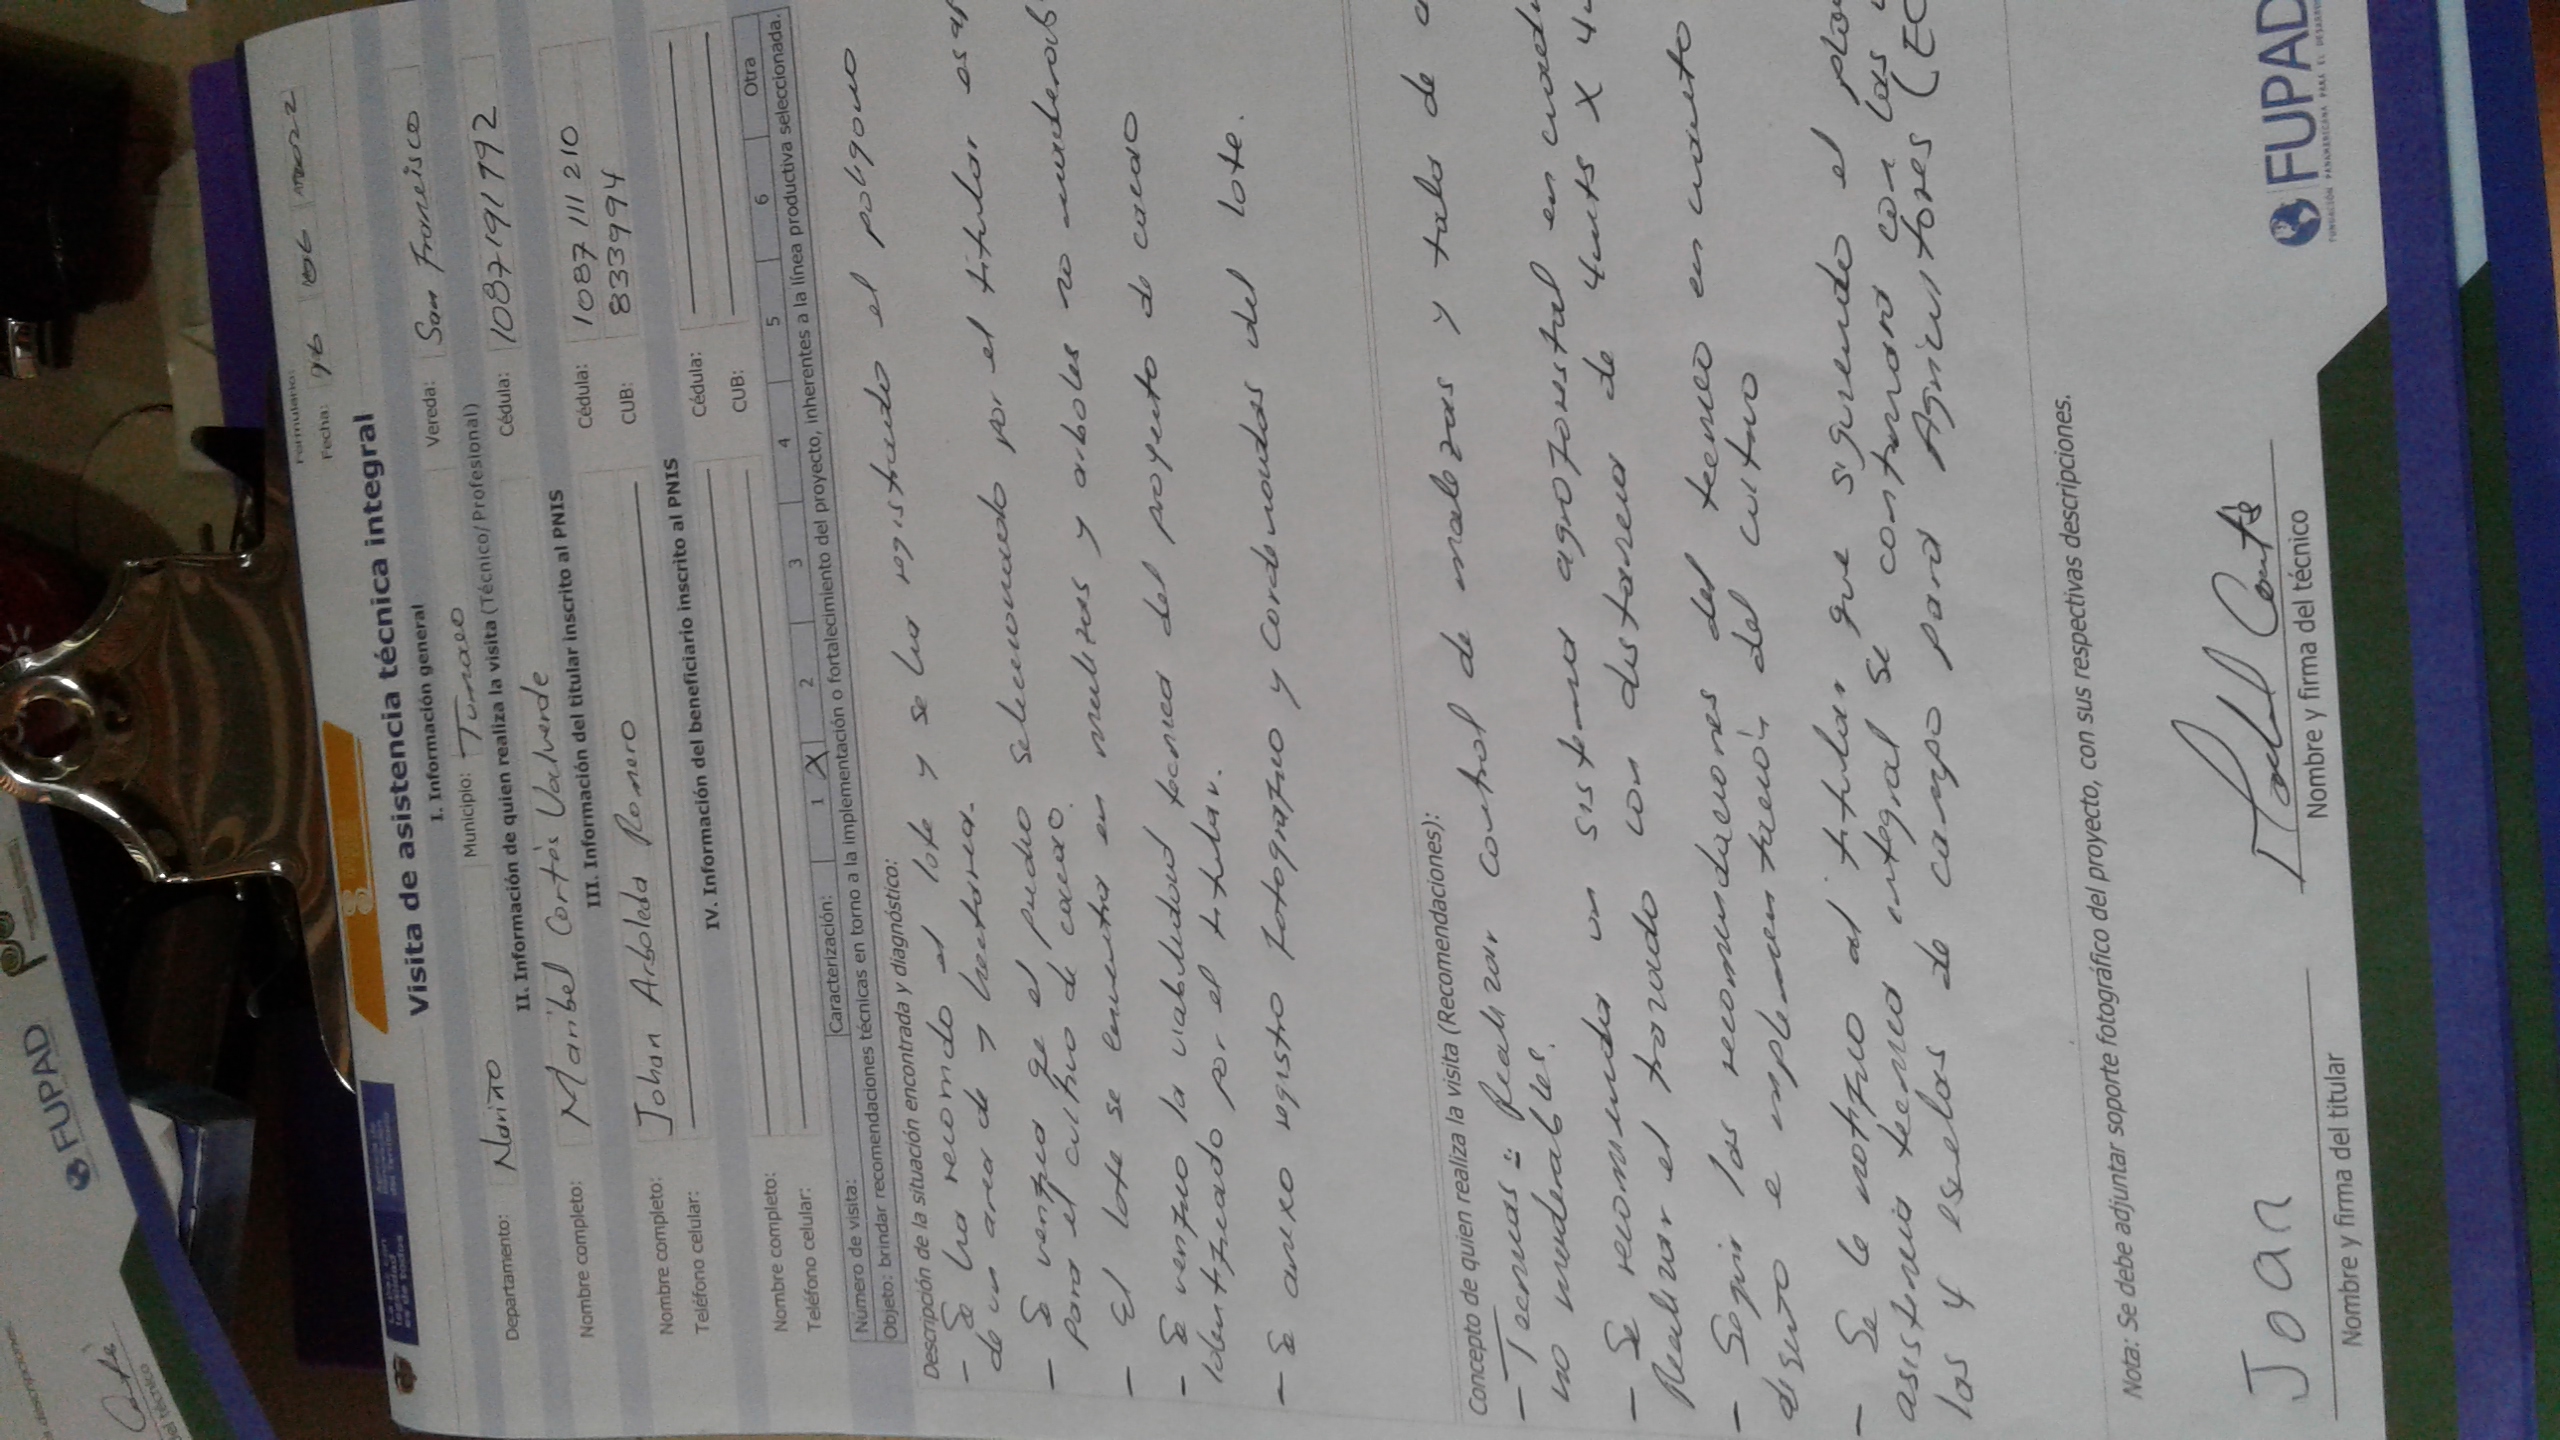 Formulario:
Fecha: 96 106 2022
Visita de asistencia técnica integral
I. Información general
Departamento: Nariño Municipio: Tumaco Vereda: San Francisco
II. Información de quien realiza la visita (Técnico/Profesional)
Nombre completo: Maribel Cortés Valverde Cédula: 1087191792
III. Información del titular inscrito al PNIS
Nombre completo: Johan Arboleda Romero Cédula: 1087111210
Teléfono celular: CUB: 8339994
IV. Información del beneficiario inscrito al PNIS
Nombre completo: Cédula:
Teléfono celular: CUB:
Número de visita: Caracterización: 1 X 2 3 4 5 6 Otra
Objeto: brindar recomendaciones técnicas en torno a la implementación o fortalecimiento del proyecto, inherentes a la línea productiva seleccionada.
Descripción de la situación encontrada y diagnóstico:
- Se ha recorrido el lote y se ha registrado el poligono
de un area de y hectarea.
- Se verifica qe el predio seleccionado por el titular es
para el cultivo de cacao.
- El lote se encuentra en malezas y arboles no
- Se verifico la viabilidad tecnica del proyecto de cacao
identificado por el titular.
- Se anexo registro fotografico y cordenadas del lote.
Concepto de quien realiza la visita (Recomendaciones):
- Tecnicas = Realizar control de malezas y tala de
no maderables.
- Se recomienda un sistema agroforestal en cuanto
Realizar el trazado con distancia de 4mts X 4
- Seguir las recomendaciones del tecnico en cuanto
diseño e implementación del cultivo
- Se le notifico al titular que siguiendo el
asistencia tecnica integral se continuara con las
las y escelas de campo para Agricultores (EC
Nota: Se debe adjuntar soporte fotográfico del proyecto, con sus respectivas descripciones.
Joan
Nombre y firma del titular
Maribel Cortés
Nombre y firma del técnico
FUPAD
FUNDACIÓN PANAMERICANA PARA EL DESARROLLO
FUPAD